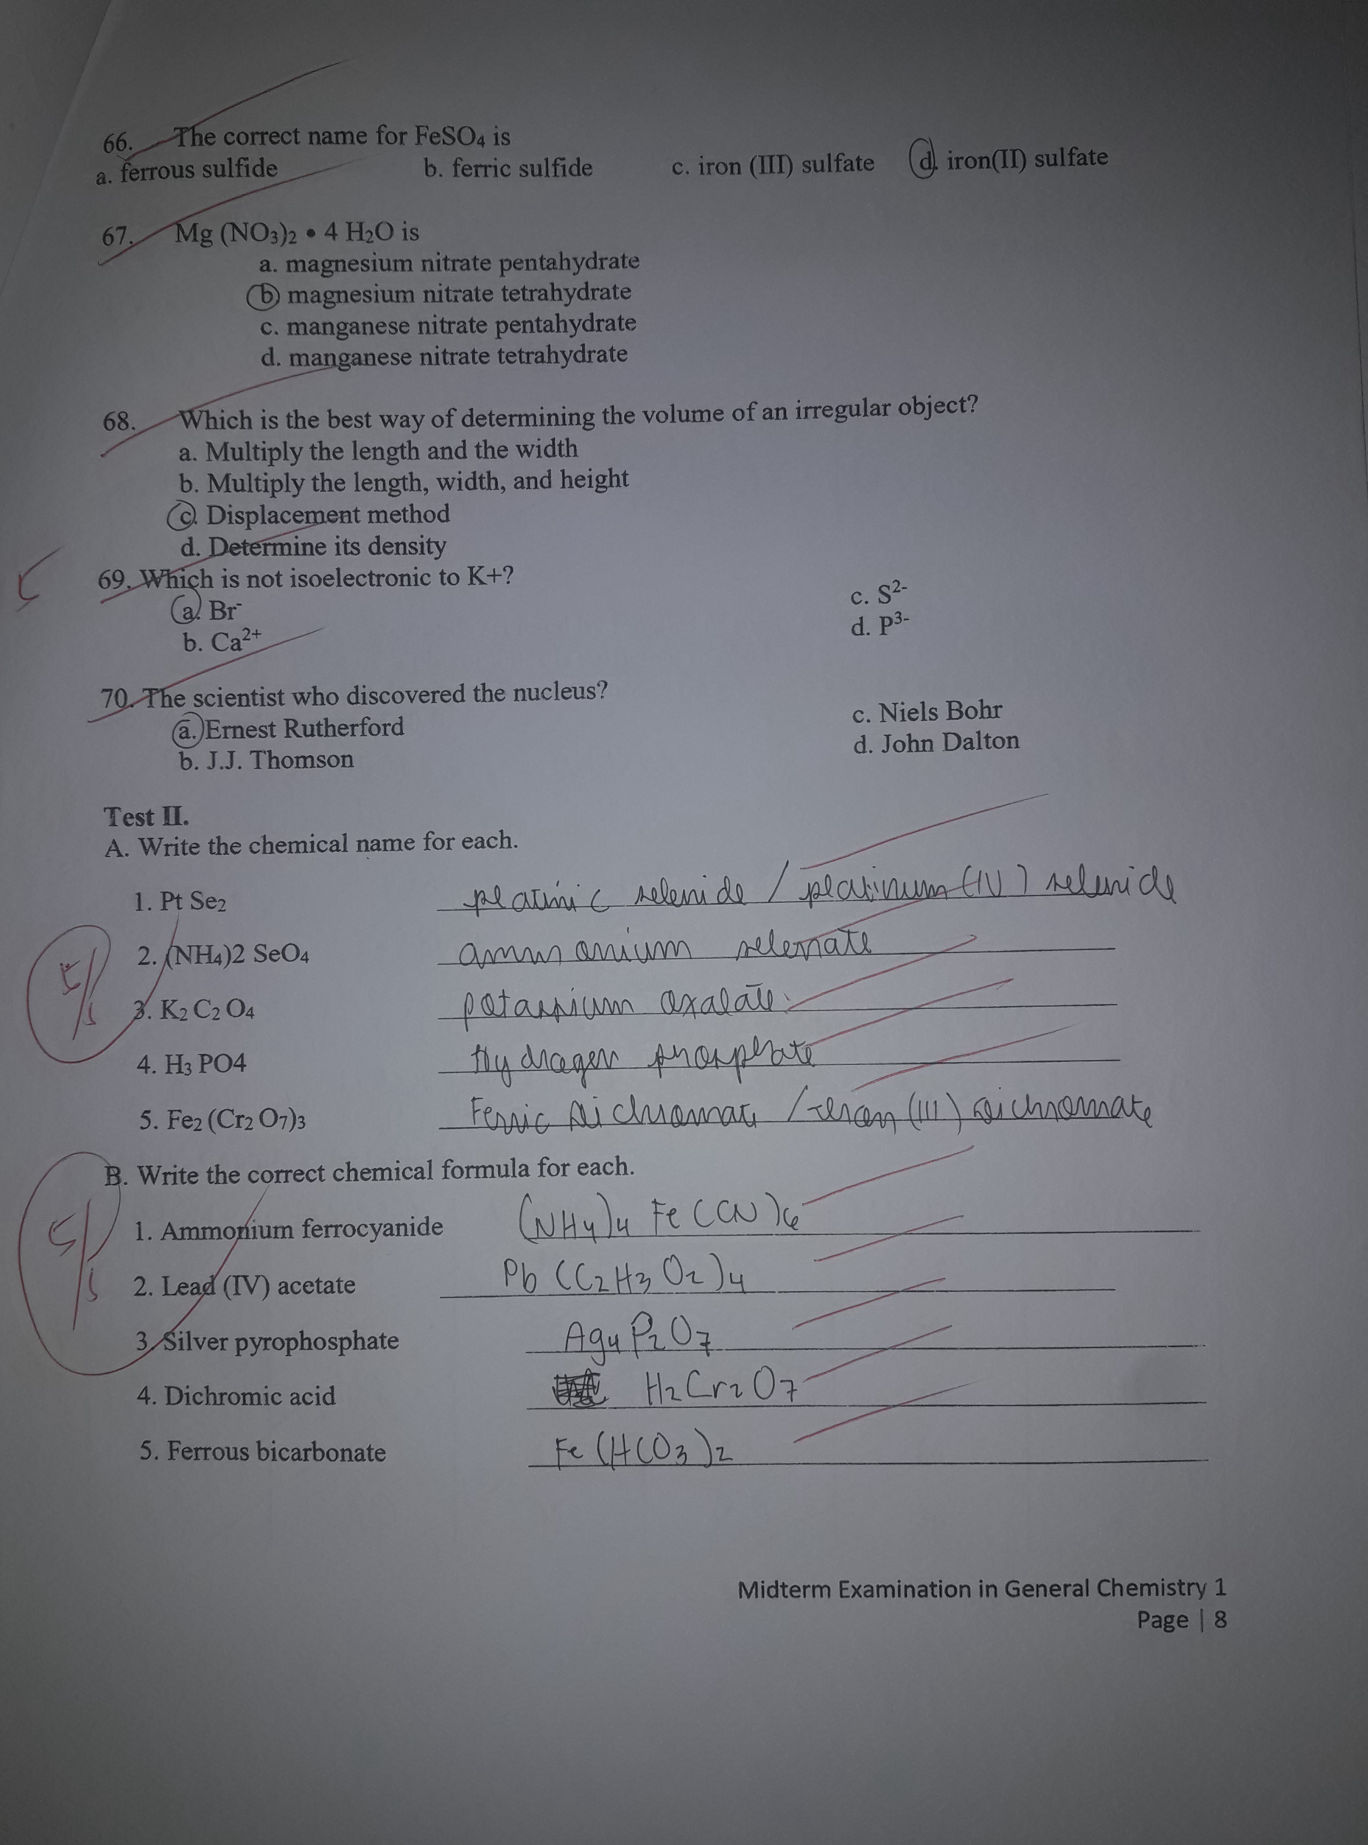 66. The correct name for FeSO4 is
a. ferrous sulfide b. ferric sulfide c. iron (III) sulfate d. iron(II) sulfate
67. Mg (NO3)2 • 4 H2O is
a. magnesium nitrate pentahydrate
b) magnesium nitrate tetrahydrate
c. manganese nitrate pentahydrate
d. manganese nitrate tetrahydrate
68. Which is the best way of determining the volume of an irregular object?
a. Multiply the length and the width
b. Multiply the length, width, and height
c. Displacement method
d. Determine its density
5
69. Which is not isoelectronic to K+?
a. Br- c. S2-
b. Ca2+ d. P3-
70. The scientist who discovered the nucleus?
a. Ernest Rutherford c. Niels Bohr
b. J.J. Thomson d. John Dalton
Test II.
A. Write the chemical name for each.
1. Pt Se2 platinic selenide / platinum (IV) selenide
2. (NH4)2 SeO4 ammonium selenate
5/5
3. K2 C2 O4 potassium oxalate
4. H3 PO4 Hydrogen phosphate
5. Fe2 (Cr2 O7)3 Ferric dichromate / (III) dichromate
B. Write the correct chemical formula for each.
1. Ammonium ferrocyanide (NH4)4 Fe (CN)6
5/5
2. Lead (IV) acetate Pb (C2H3O2)4
3. Silver pyrophosphate Ag4 P2O7
4. Dichromic acid H2Cr2O7
5. Ferrous bicarbonate Fe (HCO3)2
Midterm Examination in General Chemistry 1
Page | 8